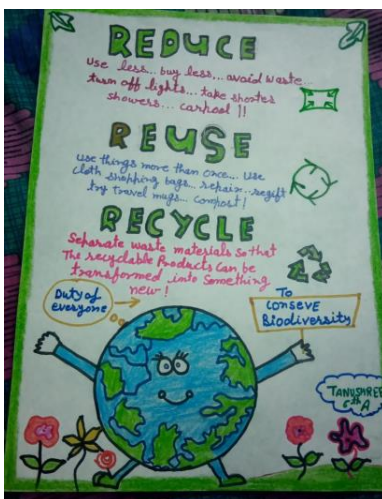 REDUCE
use less... buy less... avoid waste...
turn off lights... take shortes
showers... carpool !!
REUSE
use things more than once... use
cloth shopping bags... repair... regift
try travel mugs... compost!
RECYCLE
Separate waste materials so that
The recyclable Products can be
transformed into something
new !
Duty of
everyone
To
conseve
Biodiversity
TANUSHREE
6th A